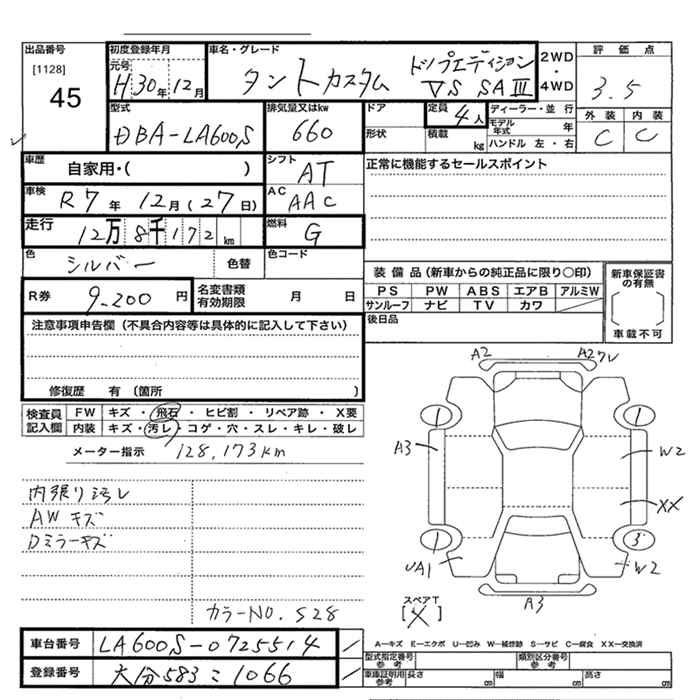 出品番号
[1128]
45
初度登録年月
元号
H30年12月
車名・グレード
タントカスタム トップエディション
VS SAⅢ
2WD
・
4WD
評価点
3.5
外装 内装
C C
型式
DBA-LA600S
排気量又はkw
660
ドア
形状
定員
4人
積載
kg
ディーラー・並行
モデル年式 年
ハンドル 左・右
車歴
自家用・( )
シフト
AT
正常に機能するセールスポイント
車検
R7年12月(27日)
AC
AAC
走行
12万8千172km
燃料
G
色
シルバー
色替
色コード
R券
9,200円
名変書類
有効期限
月 日
装備品(新車からの純正品に限り〇印)
PS PW ABS エアB アルミW
サンルーフ ナビ TV カワ
新車保証書
の有無
車載不可
後日品
注意事項申告欄(不具合内容等は具体的に記入して下さい)
修復歴 有(箇所 )
検査員
記入欄
FW キズ・飛石・ヒビ割・リペア跡・X要
内装 キズ・汚レ・コゲ・穴・スレ・キレ・破レ
メーター指示 128,173km
内張り汚レ
AWキズ
Dミラーキズ
カラーNO. S28
A2 A2ワレ
1 1
A3 W2
XX
1 3
UA1 W2
A3
スペアT
[X]
車台番号 LA600S-0725514
登録番号 大分583こ1066
A―キズ E―エクボ U―凹み W―補修跡 S―サビ C―腐食 XX―交換済
型式指定番号
参考
類別区分番号
参考
車庫証明用
参考
長さ cm 幅 cm 高さ cm